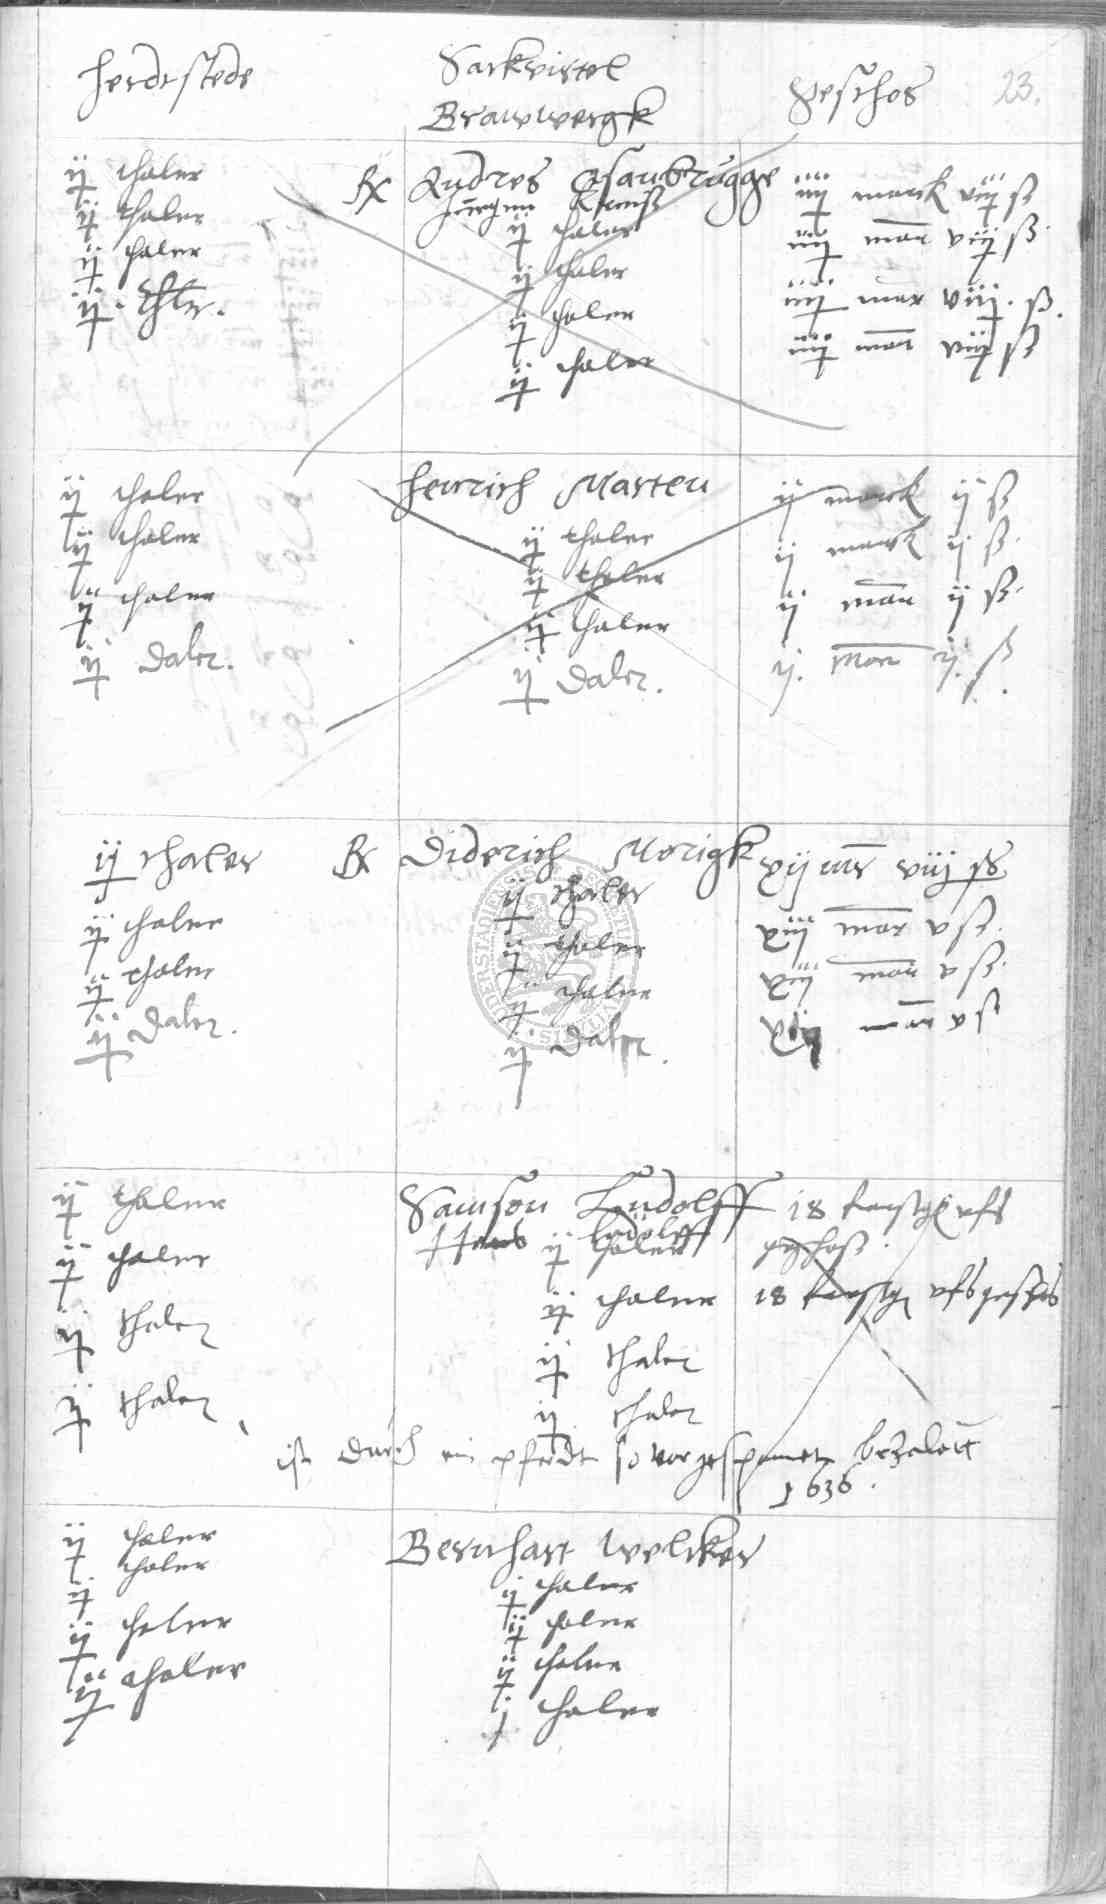 herdtstede
Sackvirtel
Brawwergk
Geschos
23.
ij thaler
ij thaler
ij thaler
ij. thlr.
Rx Andres Osanbrugge
Jurgen
ij thaler
ij thaler
ij thaler
ij thaler
iiij marck viij ß
iiij mar viij ß.
iiij mar viij. ß.
iiij mar viij ß
ij thaler
ij thaler
ij thaler
ij Daler.
Henrich Marten
ij thaler
ij thaler
ij thaler
ij Daler.
ij marck ij ß
ij marck ij ß.
ij mar ij ß.
ij. mar ij. ß.
ij thaler
ij thaler
ij thaler
ij Daler.
Rx Diderich Morigk
ij thaler
ij thaler
ij thaler
ij Daler.
xij mr viij ß
xiij mar v ß.
xiij mar v ß.
xiij mar v ß
ij thaler
ij thaler
ij thaler
ij thaler
Samson Ludolff
Hans Ludolff
ij thaler
ij thaler
ij thaler
ij thaler
18 ufs
geschoß.
18 ufs geschos
ist durch ein pferdt so vorgespannet bezalett
1636.
ij thaler
ij thaler
ij thaler
ij thaler
Bernhart Welcker
ij thaler
ij thaler
ij thaler
j thaler